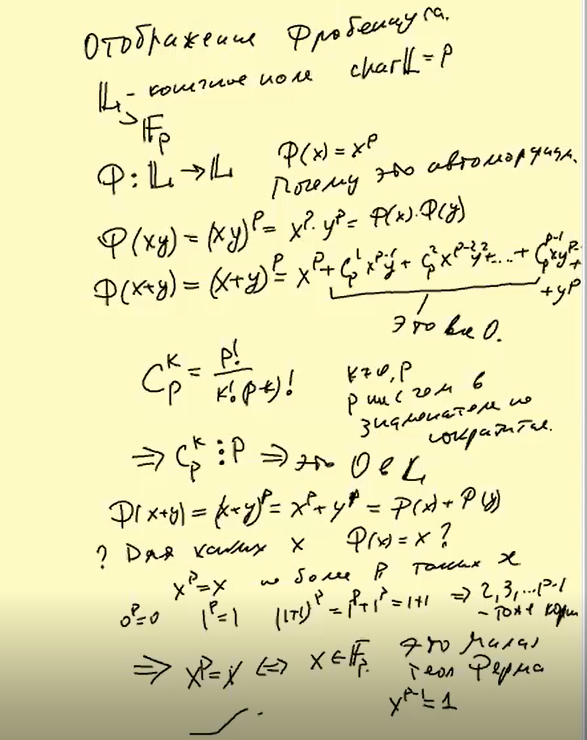 Отображение Фробениуса.
𝕃 - конечное поле char𝕃 = p
↘ 𝔽p
Φ : 𝕃 → 𝕃 Φ(x) = x^p
Почему это автоморфизм.
Φ(xy) = (xy)^p = x^p · y^p = Φ(x)·Φ(y)
Φ(x+y) = (x+y)^p = x^p + C_p^1 x^{p-1}y + C_p^2 x^{p-2}y^2 + ... + C_p^{p-1} xy^{p-1} + y^p
это все 0.
C_p^k = p! / k!(p-k)! k≠0, p
p числом в
знаменателе не
сократится.
⇒ C_p^k ⋮ p ⇒ это 0 в L
Φ(x+y) = (x+y)^p = x^p + y^p = Φ(x) + Φ(y)
? Для каких x Φ(x) = x ?
x^p = x не более p таких x
0^p=0 1^p=1 (1+1)^p = 1^p+1^p = 1+1 ⇒ 2, 3, ... p-1
- тоже корни
⇒ x^p = x ⇔ x ∈ 𝔽p. это малая
теор Ферма
x^{p-1} = 1